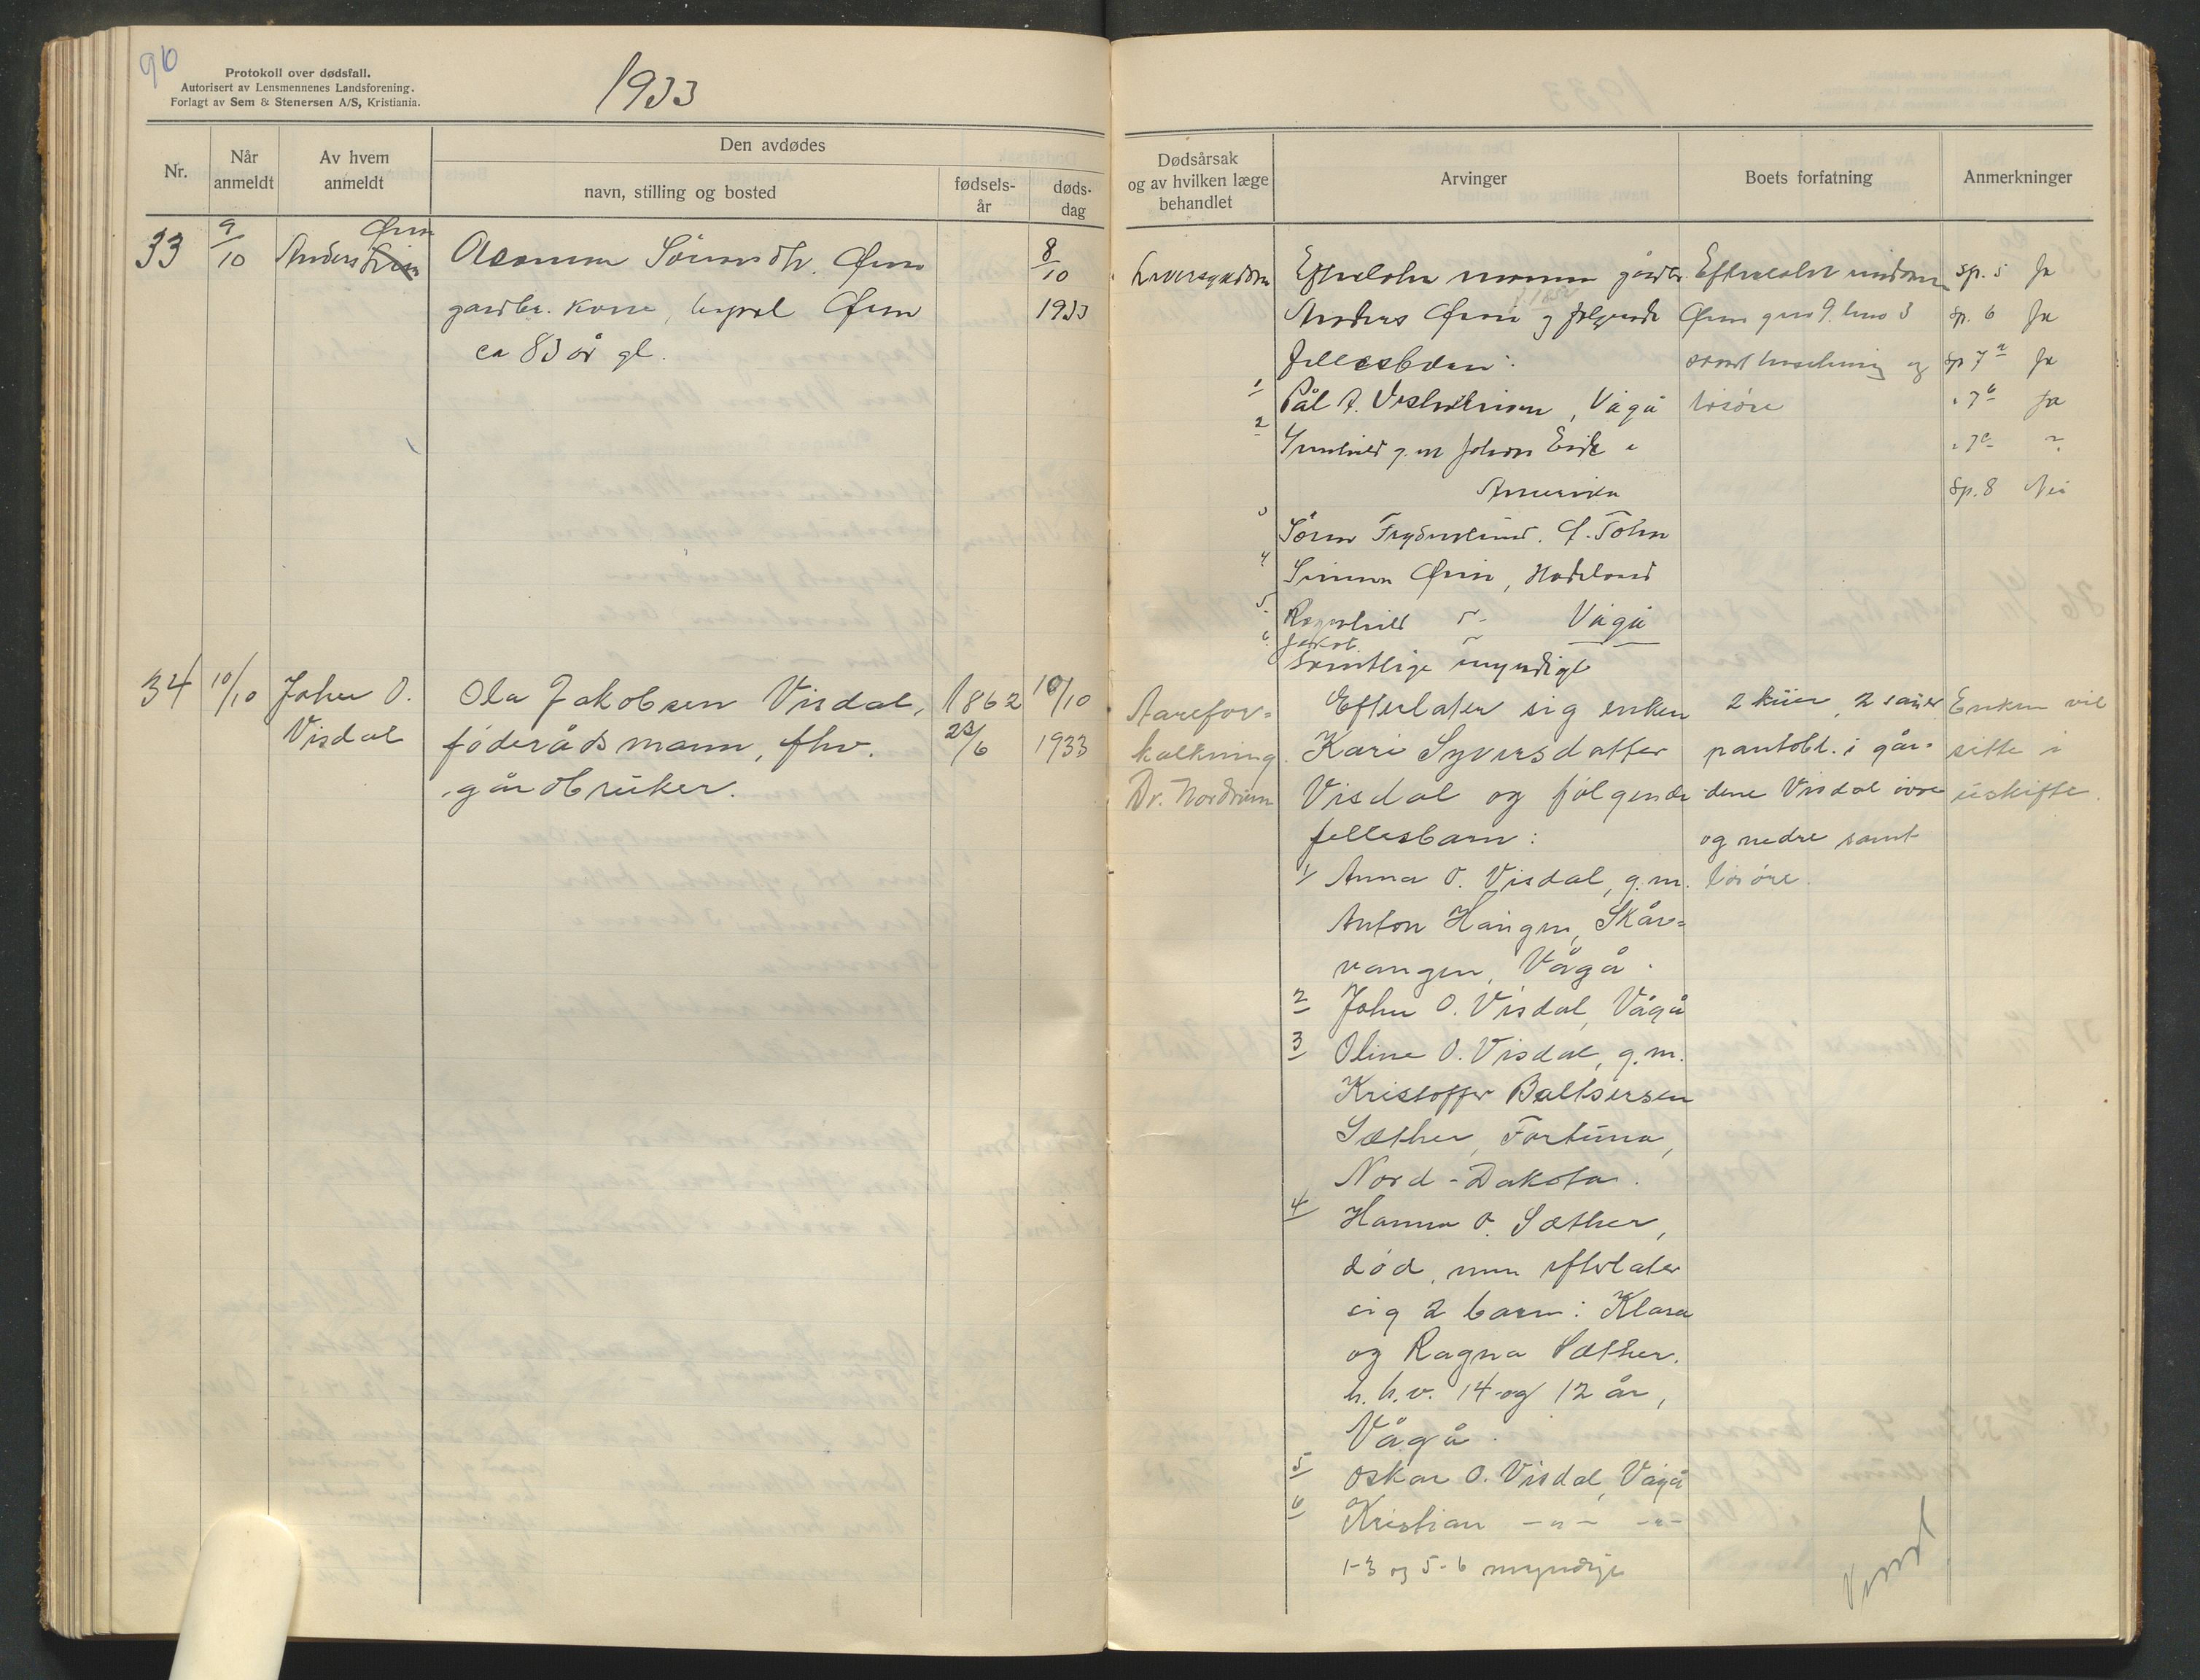 90
Protokoll over dødsfall.
Autorisert av Lensmennenes Landsforening.
Forlagt av Sem & Stenersen A/S, Kristiania.
1933
Nr.
Når anmeldt
Av hvem anmeldt
Den avdødes
navn, stilling og bosted
fødsels-år
døds-dag
Dødsårsak og av hvilken læge behandlet
Arvinger
Boets forfatning
Anmerkninger
33
9/10
Øvin
Anders
Sørensdtr. Øvin
gardbr. kone, Øvin
ca 83 år gl.
8/10
1933
Efterlater mannen gårdbr.
Anders Øvin og følgende
fellesbarn:
1 Pål A. Vågå
2 Gunhild g. m. Johan
Amerika
3 Sören Frydenlund.
4 Simen Øvin, Hadeland
5 Ragnhild Vågå
6. Jakob
Samtlige myndige
Øvin gno 9. bno 3
samt buskap og
løsøre
sp. 5 Ja
sp. 6 Ja
sp 7a Ja
" 7b Ja
" 7c ?
Sp. 8 Nei
34
10/10
Johan O.
Visdal
Ola Jakobsen Visdal,
føderådsmann, fhv.
gårdbruker.
1862
23/6
10/10
1933
Aarefor-
kalkning.
Dr. Nordrum
Efterlater sig enken
Kari Syversdatter
Visdal og følgende
fellesbarn:
1 Anna O. Visdal, g.m.
Anton Haugen, Skår-
vangen, Vågå.
2 Johan O. Visdal, Vågå
3 Oline O. Visdal, g.m.
Kristoffer Baltsersen
Sæther, Fortuna,
Nord-Dakota.
4 Hanna O. Sæther,
død, men efterlater
sig 2 barn: Klara
og Ragna Sæther.
h.h.v. 14 og 12 år,
Vågå.
5 Oskar O. Visdal, Vågå
6 Kristian -"- -"-
1-3 og 5-6 myndige
2 kuer, 2 sauer
pantobl. i går-
dene Visdal øvre
og nedre samt
løsøre.
Enken vil
sitte i
uskifte.